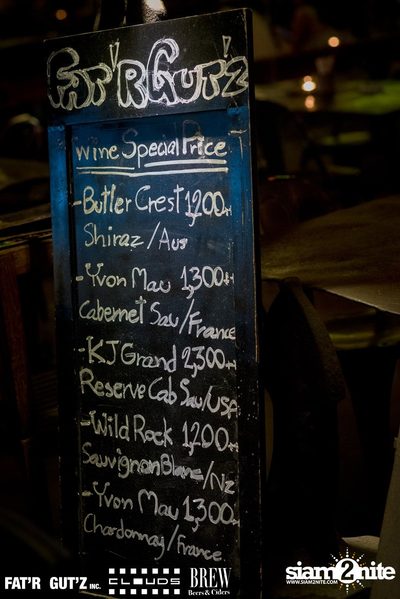 FAT'R GUT'Z
Wine Special Price
-Butler Crest 1,200++
Shiraz/Aus
-Yvon Mau 1,300++
Cabernet Sau/France
-KJ Grand 2,300++
Reserve Cab Sau/USA
-Wild Rock 1,200++
Sauvignon Blanc/Nz
-Yvon Mau 1,300++
Chardonnay/France
FAT'R GUT'Z INC.
CLOUDS
BREW
Beers & Ciders
siam2nite
WWW.SIAM2NITE.COM